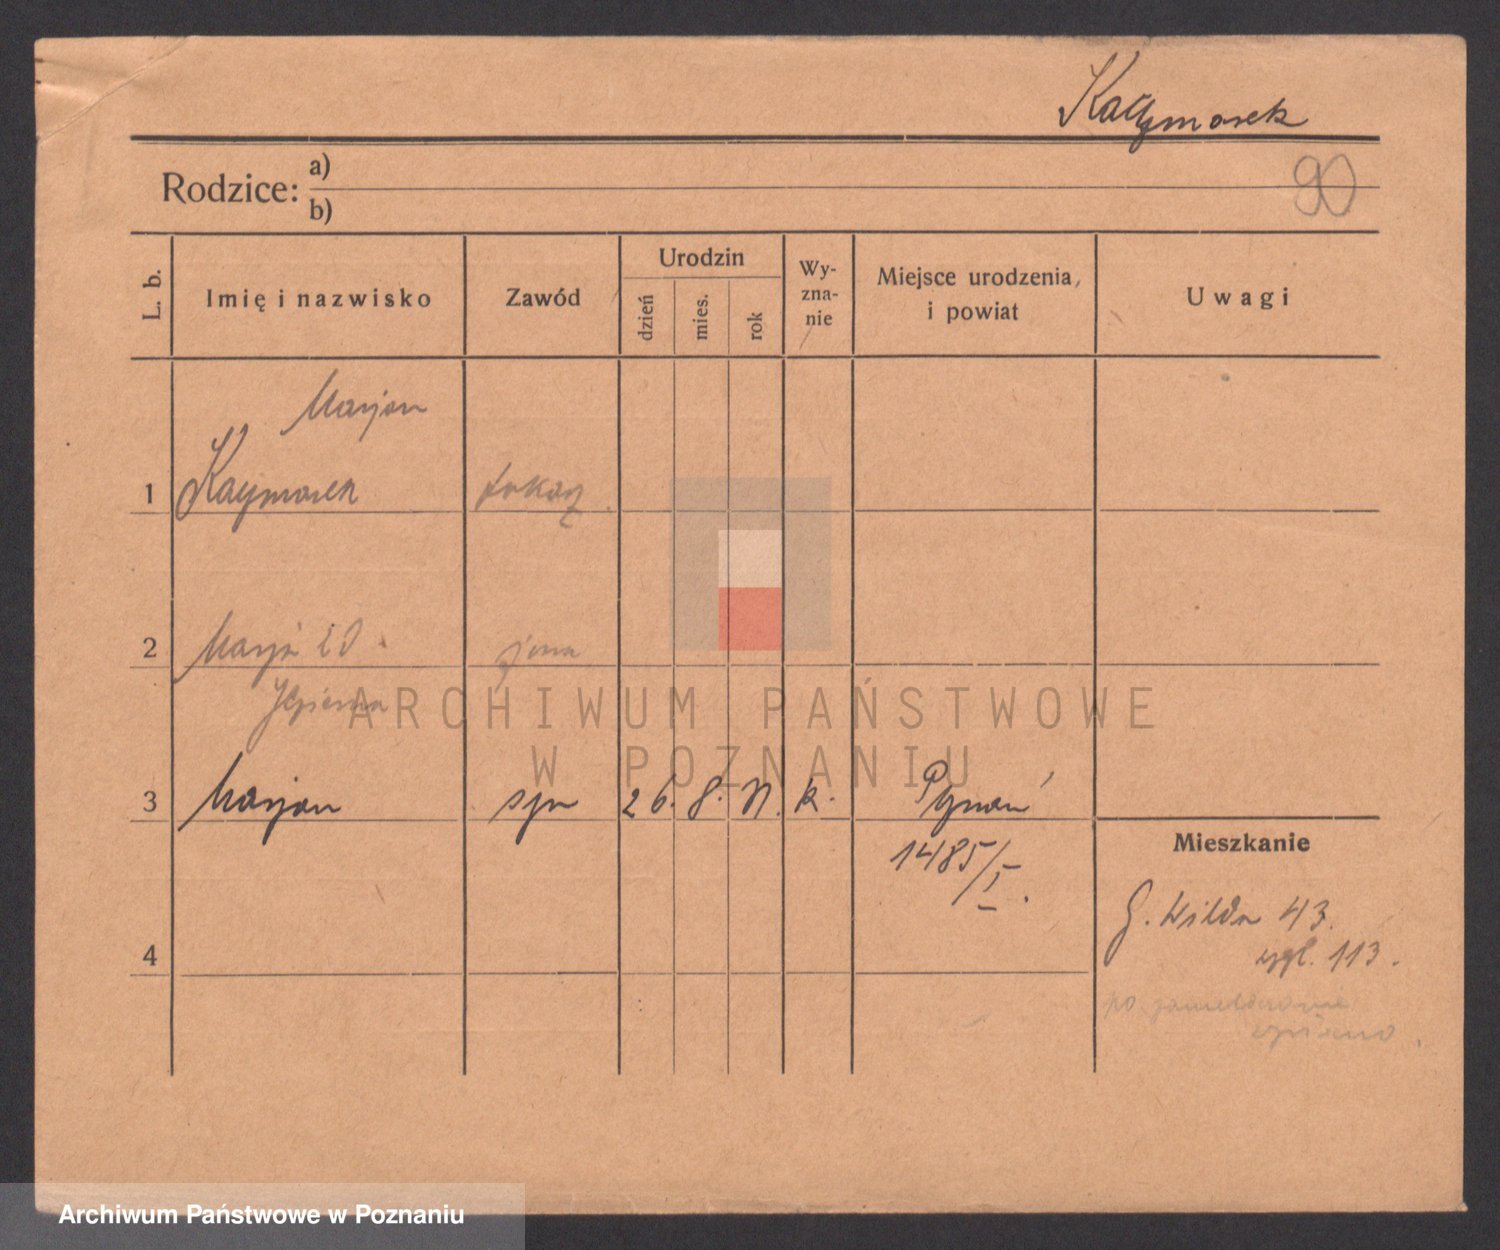 Kaczmarek
Rodzice: a)
b)
90
L. b.
Imię i nazwisko
Zawód
Urodzin
dzień
mies.
rok
Wy-
zna-
nie
Miejsce urodzenia,
i powiat
Uwagi
Marjan
1 Kaczmarek tokarz
2 Marja żona
3 Marjan syn 26. 8. k. Poznań
1485/I.
Mieszkanie
G. Wilda 43.
wzgl. 113.
4
po
ARCHIWUM PAŃSTWOWE
W POZNANIU
Archiwum Państwowe w Poznaniu